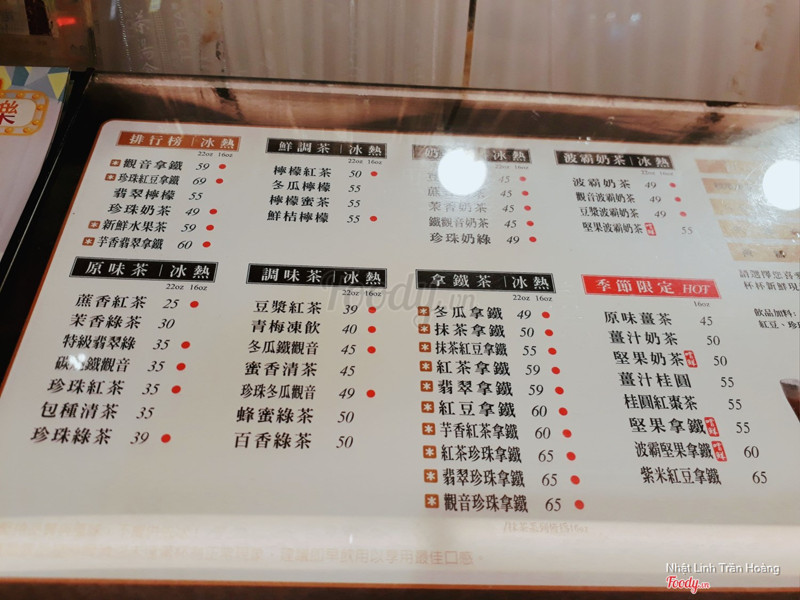 樂
排行榜 | 冰熱
22oz 16oz
觀音拿鐵 59
珍珠紅豆拿鐵 69
翡翠檸檬 55
珍珠奶茶 49
新鮮水果茶 59
芋香翡翠拿鐵 60
鮮調茶 | 冰熱
22oz 16oz
檸檬紅茶 50
冬瓜檸檬 55
檸檬蜜茶 55
鮮桔檸檬 55
冰熱
22oz 16oz
45
45
茉香奶茶 45
鐵觀音奶茶 45
珍珠奶綠 49
波霸奶茶 | 冰熱
22oz 16oz
波霸奶茶 49
觀音波霸奶茶 49
豆漿波霸奶茶 49
堅果波霸奶茶 55
原味茶 | 冰熱
22oz 16oz
蔗香紅茶 25
茉香綠茶 30
特級翡翠綠 35
鐵觀音 35
珍珠紅茶 35
包種清茶 35
珍珠綠茶 39
調味茶 | 冰熱
22oz 16oz
豆漿紅茶 39
青梅凍飲 40
冬瓜鐵觀音 45
蜜香清茶 45
珍珠冬瓜觀音 49
蜂蜜綠茶 50
百香綠茶 50
拿鐵茶 | 冰熱
22oz 16oz
冬瓜拿鐵 49
抹茶拿鐵 50
抹茶紅豆拿鐵 55
紅茶拿鐵 59
翡翠拿鐵 59
紅豆拿鐵 60
芋香紅茶拿鐵 60
紅茶珍珠拿鐵 65
翡翠珍珠拿鐵 65
觀音珍珠拿鐵 65
季節限定 HOT
16oz
原味薑茶 45
薑汁奶茶 50
堅果奶茶 50
薑汁桂圓 55
桂圓紅棗茶 55
堅果拿鐵 55
波霸堅果拿鐵 60
紫米紅豆拿鐵 65
請選擇您喜
杯杯新鮮現
飲品加料:
紅豆、珍
Foody.vn
Nhật Linh Trần Hoàng
Foody.vn